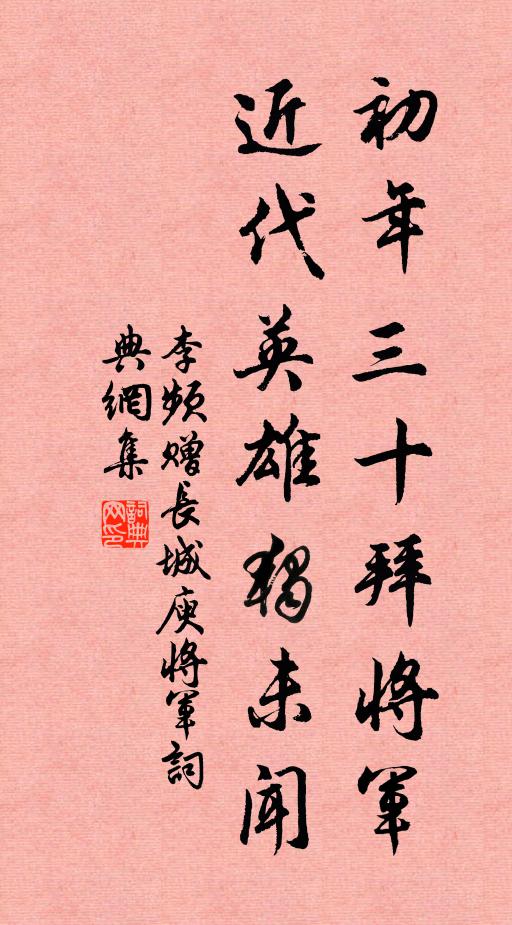 初年三十拜將軍
近代英雄獨未聞
李頻贈長城庾將軍詞
典網集
詞典
网印